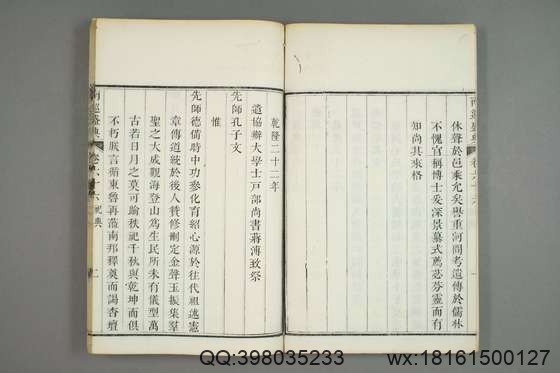 休聲於邑乘允矣譽重河間考遺傳於儒林
不愧官稱博士爰深景慕式薦苾芬靈而有
知尚其來格
乾隆二十二年
遣協辦大學士戶部尚書蔣溥致祭
先師孔子文
惟
先師德備時中功參化育紹心源於往代祖述憲
章傳道統於後人贊修刪定金聲玉振集羣
聖之大成觀海登山爲生民所未有儀型萬
古若日月之莫可踰秩祀千秋與乾坤而俱
不朽朕言循東魯再蒞南邦釋奠而謁杏壇
南巡盛典 卷六十六 祀典
QQ:398035233
wx:18161500127